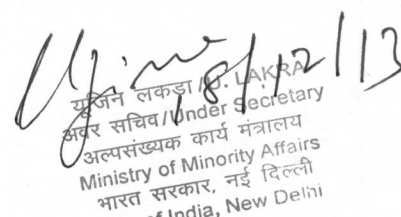 18/12/13
यूजिन लकड़ा/U. LAKRA
अवर सचिव/Under Secretary
अल्पसंख्यक कार्य मंत्रालय
Ministry of Minority Affairs
भारत सरकार, नई दिल्ली
of India, New Delhi